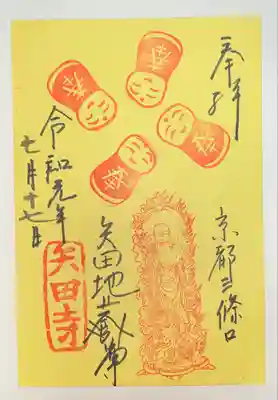 奉拝
京都三條口
矢田地蔵尊
令和元年
七月十七日
矢田寺